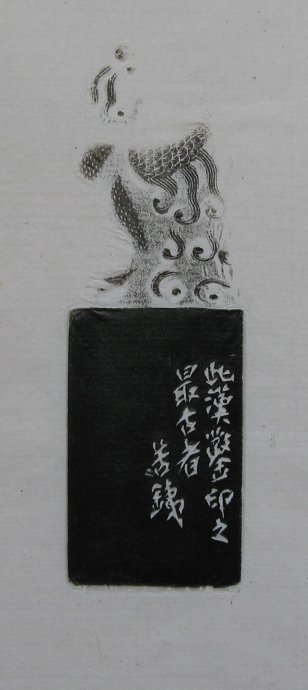 此漢鑿印之
最古者
苦鐵